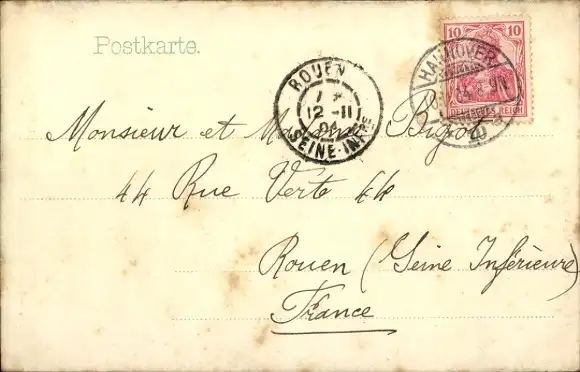 Postkarte.
10 10
DEUTSCHES REICH
HANNOVER
ROUEN
12 - 11
SEINE-INFRE
Monsieur et Madame Bigot
44 Rue Verte 44
Rouen (Seine Inférieure)
France